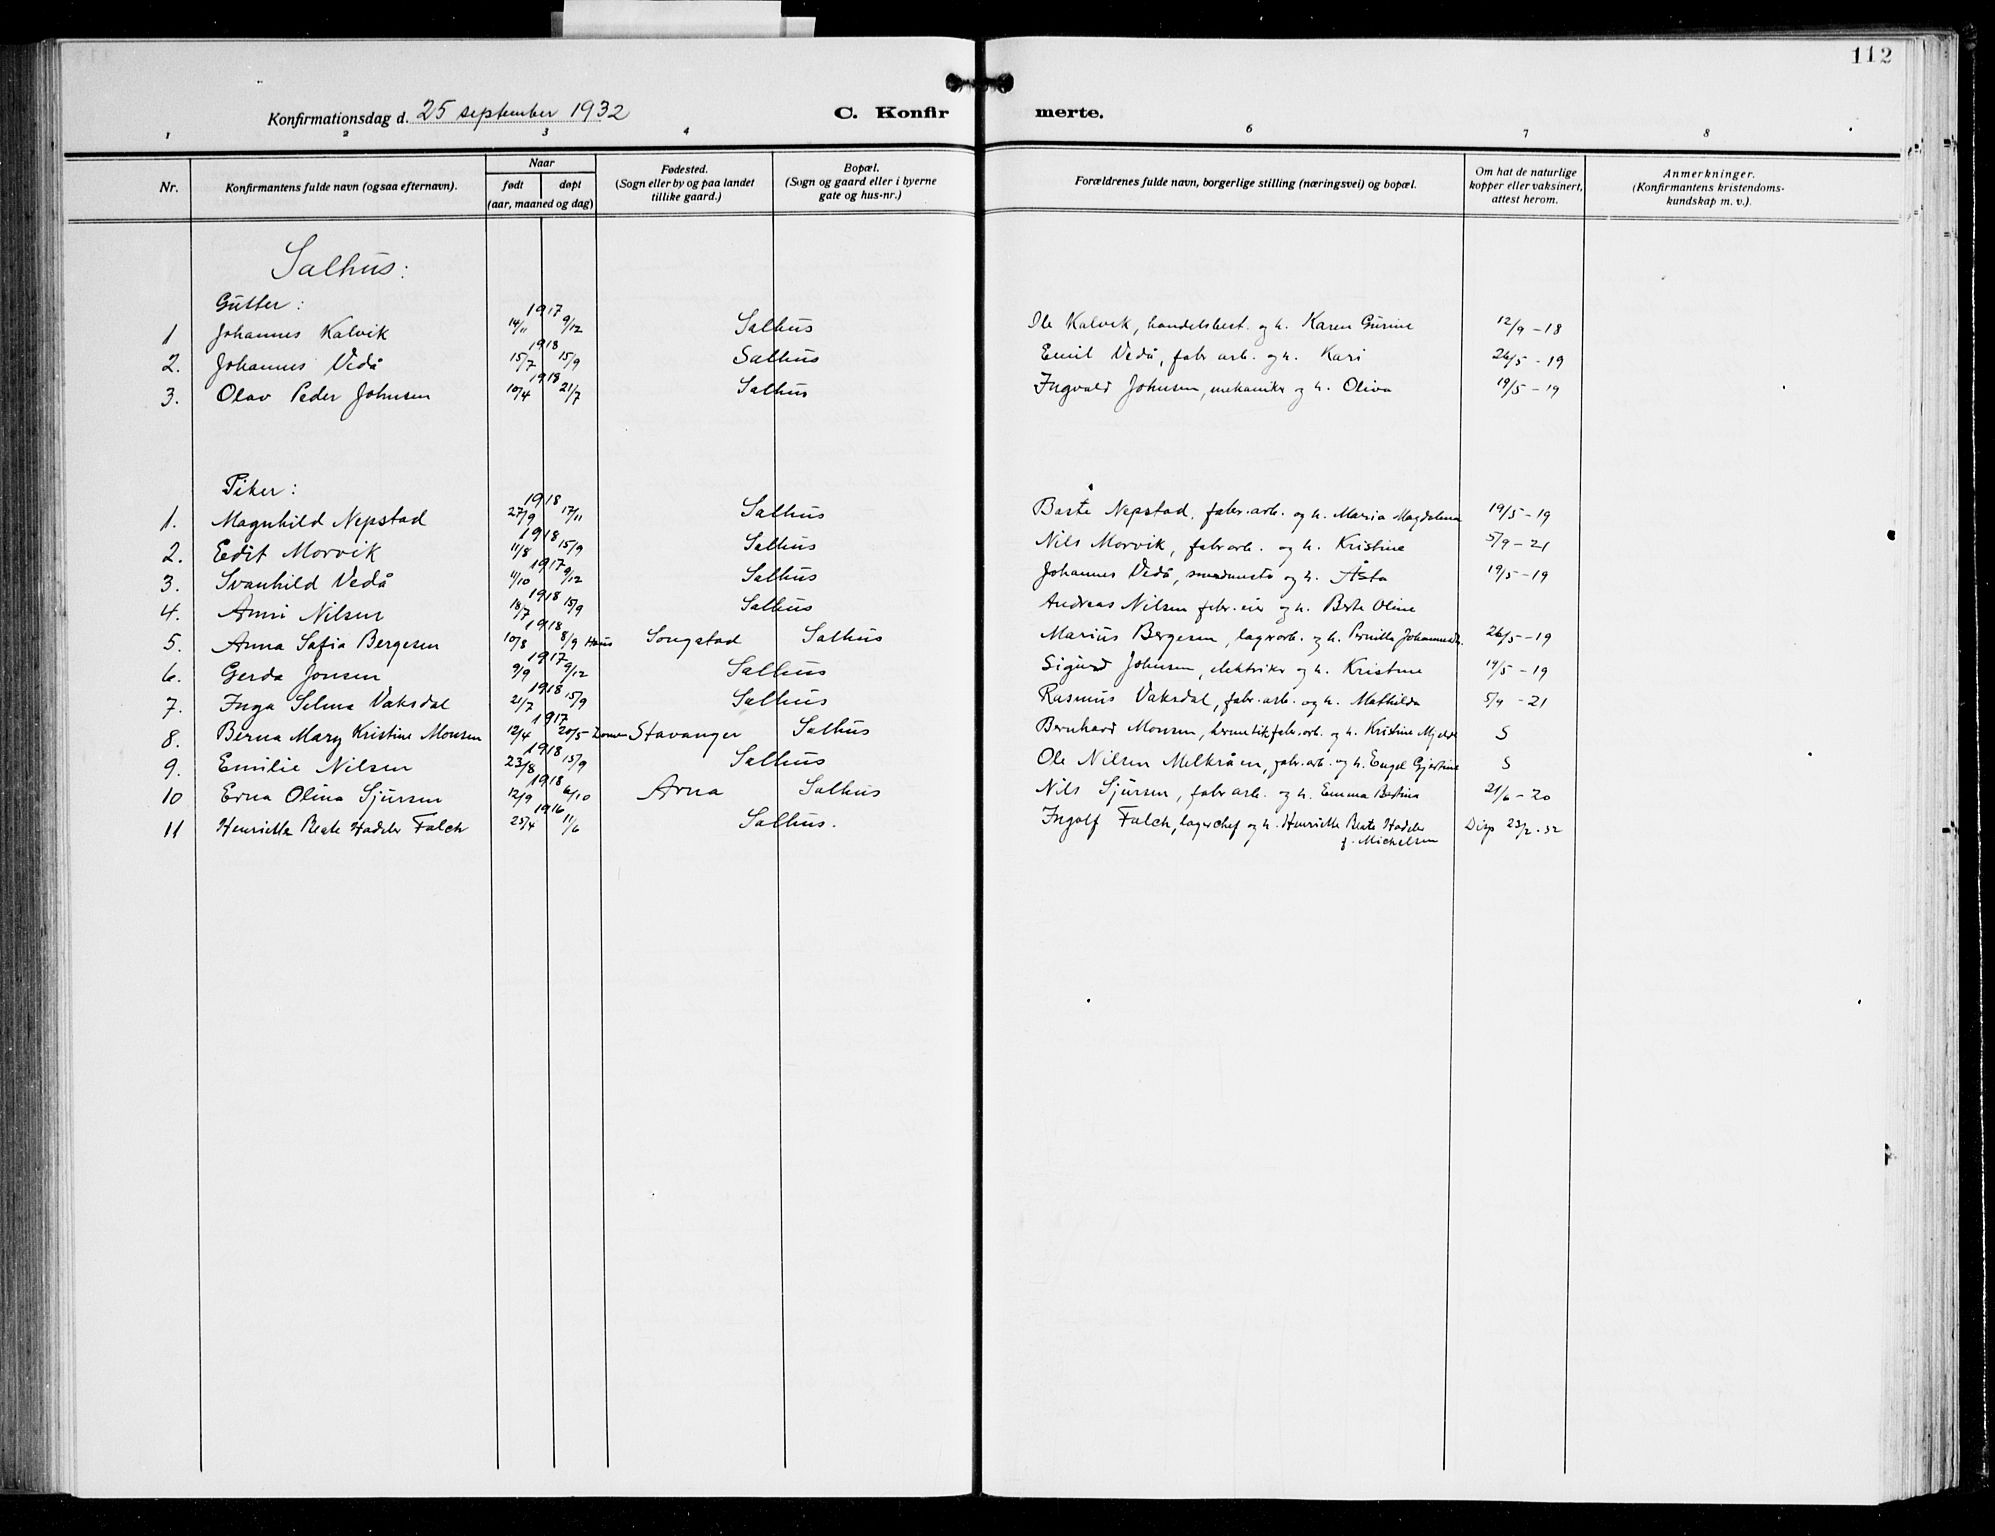 112
Konfirmationsdag d. 25 september 1932 C. Konfirmerte.
1 2 3 4 6 7 8
Nr. Konfirmantens fulde navn (ogsaa efternavn). Naar født døpt (aar, maaned og dag) Fødested. (Sogn eller by og paa landet tillike gaard.) Bopæl. (Sogn og gaard eller i byerne gate og hus-nr.) Forældrenes fulde navn, borgerlige stilling (næringsvei) og bopæl. Om hat de naturlige kopper eller vaksinert, attest herom. Anmerkninger. (Konfirmantens kristendomskundskap m. v.).
Salhus:
Gutter:
1 Johannes Kalvik 1917 14/11 9/12 Salhus Ole Kalvik, handelsbest. og h. Karen Gurine 12/9 - 18
2. Johannes Vedå 1918 15/7 15/9 Salhus Emil Vedå, fabr arb. og h. Kari 26/5 - 19
3. Olav Peder Johnsen 1918 10/4 21/7 Salhus Ingvald Johnsen, mekaniker og h. Oliva 19/5 - 19
Piker:
1. Magnhild Nepstad 1918 27/9 17/11 Salhus Nepstad, fabr.arb. og h. Maria Magdalena 19/5 - 19
2. Edit Morvik 1918 11/8 15/9 Salhus Nils Morvik, fabr arb. og h. Kristine 5/9 - 21
3. Svanhild Vedå 1917 9/12 Salhus Johannes Vedå, og h. Åsta 19/5 - 19
4. Anni Nilsen 1918 18/7 15/9 Salhus Andreas Nilsen fabr.eier og h. Berte Oline
5. Anna Sofia Bergesen 1918 10/8 8/9 Haus Songstad Salhus Marius Bergesen, lagerarb. og h. Pernille 26/5 - 19
6. Gerda Jonsen 1917 9/9 9/12 Salhus Sigurd Johnsen, elektriker og h. Kristine 19/5 - 19
7. Inga Selma Vaksdal 1918 21/7 15/9 Salhus Rasmus Vaksdal, fabr.arb. og h. Mathilda - 21
8. Berna Mary Kristine Monsen 1917 12/4 20/5 Stavanger Salhus Bernhard Monsen, hermetikfabr.arb. og h. Kristine Mjelde S
9. Emilie Nilsen 1918 23/8 15/9 Salhus Ole Nilsen Melkråen, fabr.arb. og h. Engel Gjertine S
10 Erna Olina Sjursen 1918 12/9 6/10 Arna Salhus Nils Sjursen, fabr arb. og h. Emma Bertina 21/6 - 20
11 Henriette Beate Hadeler Falch 1916 25/4 11/6 Salhus. Ingolf Falch, lagerchef og h. Henriette Beate Hadeler f. Michelsen Disp 23/2 - 32